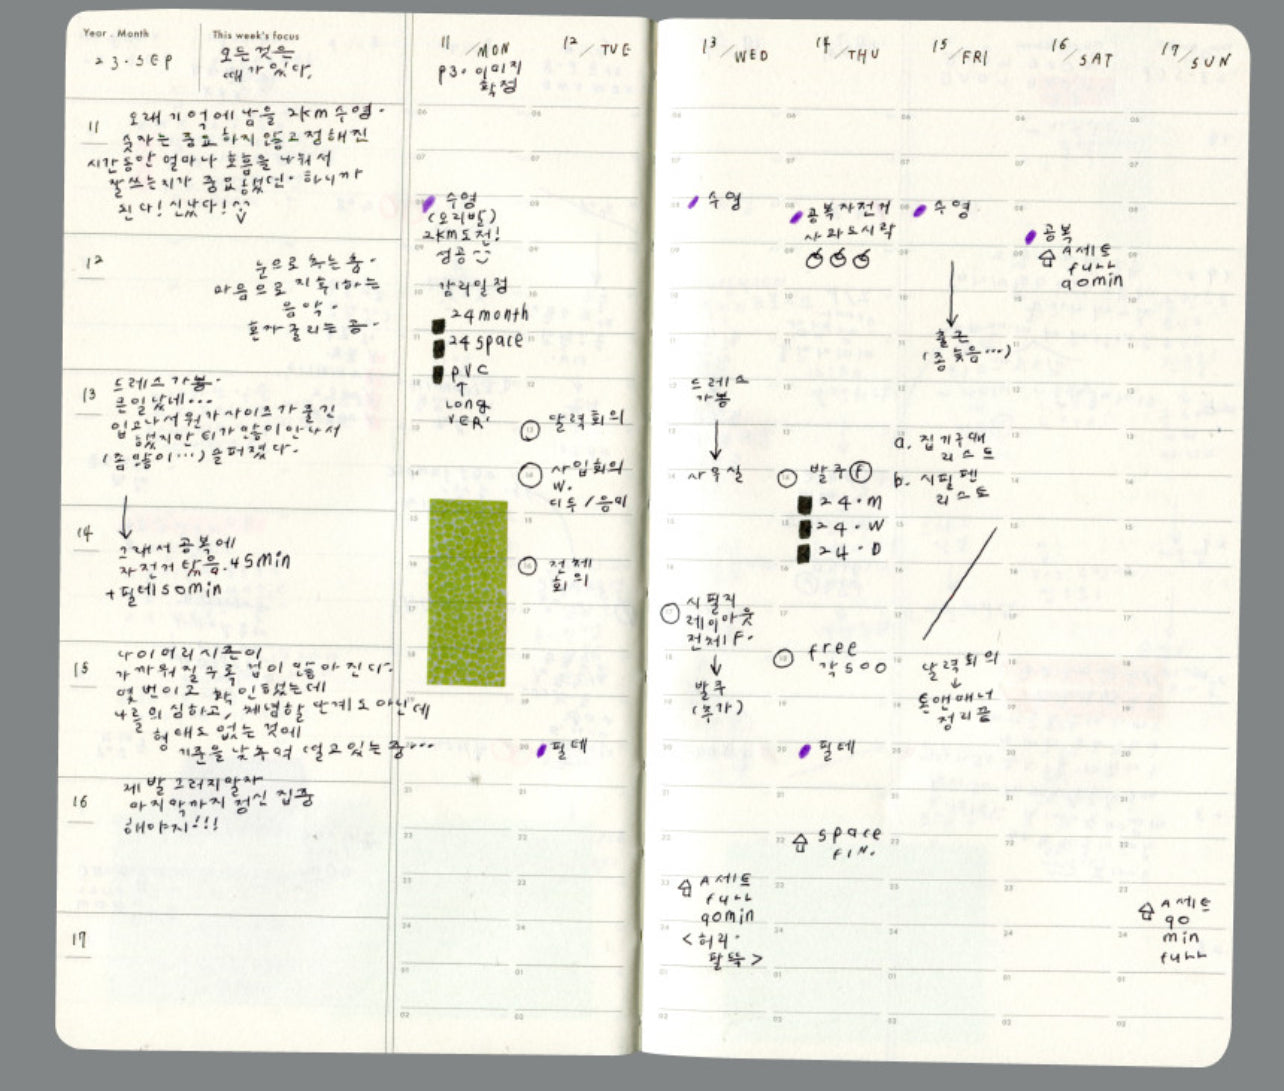 Year . Month
23. SEP
This week's focus
모든 것은
때가 있다.
11
오래 기억에 남을 2km 수영.
숫자는 중요하지 않고 정해진
시간동안 얼마나 호흡을 나눠서
잘 쓰는지가 중요했던. 하니까
된다! 신났다!
12
눈으로 추는 춤.
마음으로 지휘하는
음악.
혼자 굴리는 공.
13
드레스 가봉.
큰일났네...
입고나서 뭔가 사이즈가 줄긴
했지만 티가 많이 안나서
(좀 많이...) 슬퍼졌다.
14
그래서 공복에
자전거 탔음. 45min
+ 필테 50min
15
나이 먹어 시즌이
가까워질수록 겁이 많아진다.
몇 번이고 확인했는데
나를 의심하고, 체념할 단계도 아닌데
형태도 없는 것에
기준을 낮추며 떨고 있는 중...
16
제발 그러지 말자
마지막까지 정신 집중
해야지!!!
17
11 / MON
P3. 이미지
확정
06
07
수영
(오리발)
2km 도전!
성공
09
감리일정
10
24 month
11
24 space
PVC
12
↑
Long
VER.
15
16
17
18
19
20
21
22
23
24
01
02
12 / TUE
06
07
08
09
10
11
12
13
달력회의
14
사입회의
W.
디두 / 음미
15
16
전체
회의
17
18
19
20
필테
21
22
23
24
01
02
13 / WED
수영
드레스
가봉
↓
사무실
17
시필지
레이아웃
전체 F.
↓
발주
(추가)
23
A세트
full
90min
<허리.
팔뚝>
14 / THU
06
07
08
공복자전거
사과도시락
09
10
11
12
13
14
발주 F
24. M
24. W
24. D
15
16
17
18
free
각 500
19
20
필테
21
22
space
FIN.
23
24
01
02
15 / FRI
06
07
수영
↓
출근
(좀 늦음...)
a. 집기구매
리스트
b. 시필펜
리스트
달력회의
↓
톤앤매너
정리끝
16 / SAT
06
07
08
공복
A세트
full
90min
17 / SUN
A세트
90
min
full